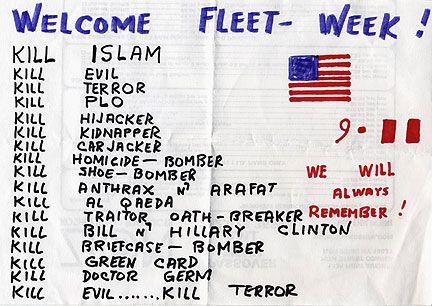 WELCOME FLEET-WEEK!
KILL ISLAM
KILL EVIL
KILL TERROR
KILL PLO
KILL HIJACKER
KILL KIDNAPPER
KILL CARJACKER
KILL HOMICIDE-BOMBER
KILL SHOE-BOMBER
KILL ANTHRAX N' ARAFAT
KILL AL QAEDA
KILL TRAITOR OATH-BREAKER
KILL BILL N' HILLARY CLINTON
KILL BRIEFCASE-BOMBER
KILL GREEN CARD
KILL DOCTOR GERM
KILL EVIL.......KILL TERROR
9-11
WE WILL
ALWAYS
REMEMBER!